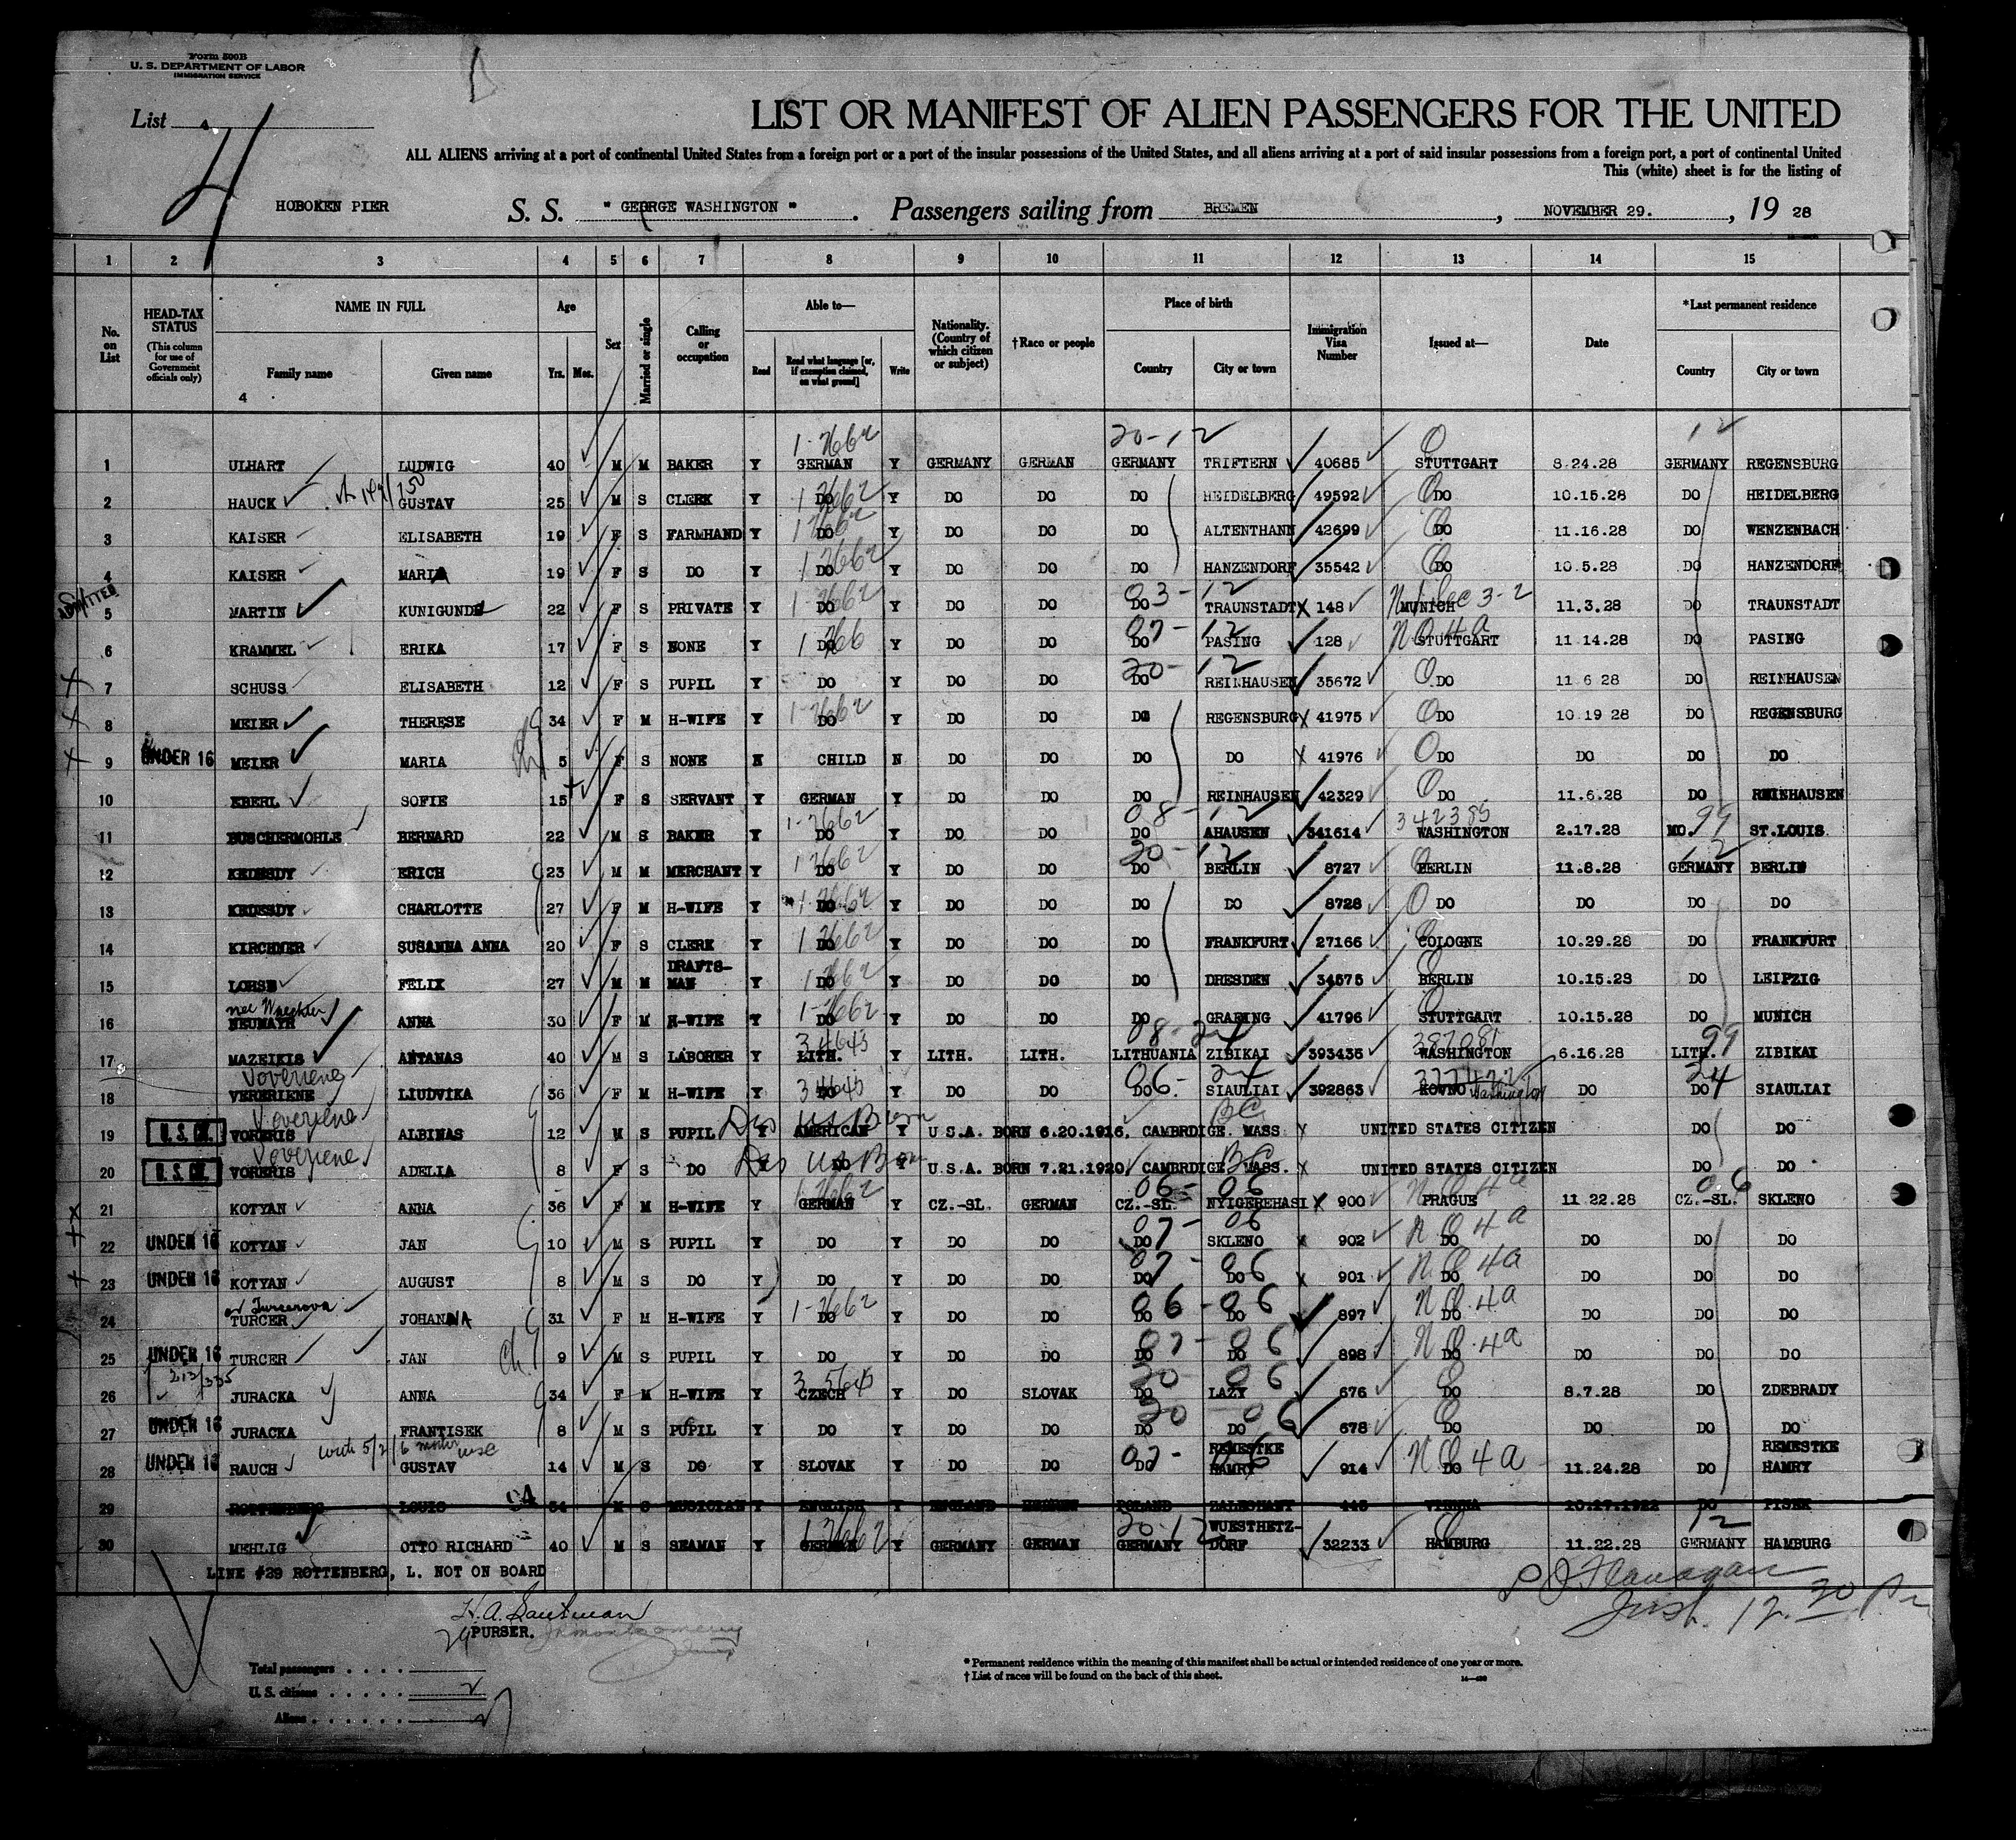 Form 500B
U. S. DEPARTMENT OF LABOR
IMMIGRATION SERVICE
List 4
LIST OR MANIFEST OF ALIEN PASSENGERS FOR THE UNITED
ALL ALIENS arriving at a port of continental United States from a foreign port or a port of the insular possessions of the United States, and all aliens arriving at a port of said insular possessions from a foreign port, a port of continental United
This (white) sheet is for the listing of
HOBOKEN PIER S. S. " GEORGE WASHINGTON " . Passengers sailing from BREMEN , NOVEMBER 29. , 19 28
1 2 3 4 5 6 7 8 9 10 11 12 13 14 15
No. on List
HEAD-TAX STATUS (This column for use of Government officials only)
NAME IN FULL Family name Given name
Age Yrs. Mos.
Sex
Married or single
Calling or occupation
Able to— Read Read what language [or, if exemption claimed, on what ground] Write
Nationality. (Country of which citizen or subject)
†Race or people
Place of birth Country City or town
Immigration Visa Number
Issued at—
Date
*Last permanent residence Country City or town
4
1-7662 20-12 12
1 ULHART LUDWIG 40 M M BAKER Y GERMAN Y GERMANY GERMAN GERMANY TRIFTERN 40685 STUTTGART 8.24.28 GERMANY REGENSBURG
2 HAUCK GUSTAV 25 M S CLERK Y DO Y DO DO DO HEIDELBERG 49592 DO 10.15.28 DO HEIDELBERG
3 KAISER ELISABETH 19 F S FARMHAND Y DO Y DO DO DO ALTENTHANN 42699 DO 11.16.28 DO WENZENBACH
4 KAISER MARIA 19 F S DO Y DO Y DO DO DO HANZENDORF 35542 DO 10.5.28 DO HANZENDORF
ADMITTED
5 MARTIN KUNIGUNDE 22 F S PRIVATE Y DO Y DO DO DO TRAUNSTADT 148 MUNICH 11.3.28 DO TRAUNSTADT
6 KRAMMEL ERIKA 17 F S NONE Y DO Y DO DO DO PASING 128 STUTTGART 11 14.28 DO PASING
7 SCHUSS ELISABETH 12 F S PUPIL Y DO Y DO DO DO REINHAUSEN 35672 DO 11 6 28 DO REINHAUSEN
8 MEIER THERESE 34 F M H-WIFE Y DO Y DO DO DO REGENSBURG 41975 DO 10 19 28 DO REGENSBURG
9 UNDER 16 MEIER MARIA 5 F S NONE N CHILD N DO DO DO DO 41976 DO DO DO DO
10 EBERL SOFIE 15 F S SERVANT Y GERMAN Y DO DO DO REINHAUSEN 42329 DO 11.6.28 DO REINHAUSEN
11 BUSCHERMOHLE BERNARD 22 M S BAKER Y DO Y DO DO DO AHAUSEN 341614 342385 WASHINGTON 2.17.28 MO. 99 ST.LOUIS
12 ERICH 23 M M MERCHANT Y DO Y DO DO DO BERLIN 8727 BERLIN 11.8.28 GERMANY BERLIN
13 CHARLOTTE 27 F M H-WIFE Y DO Y DO DO DO DO 8728 DO DO DO DO
14 KIRCHNER SUSANNA ANNA 20 F S CLERK Y DO Y DO DO DO FRANKFURT 27166 COLOGNE 10.29.28 DO FRANKFURT
15 FELIX 27 M M DRAFTS-MAN Y DO Y DO DO DO DRESDEN 34575 BERLIN 10.15.28 DO LEIPZIG
16 NEUMAYR ANNA 30 F M H-WIFE Y DO Y DO DO DO GRAFING 41796 STUTTGART 10.15.28 DO MUNICH
17 MAZEIKIS ANTANAS 40 M S LABORER Y LITH. Y LITH. LITH. LITHUANIA ZIBIKAI 393435 WASHINGTON 6.16.28 LITH. 99 ZIBIKAI
Voveriene
18 VERERIENE LIUDVIKA 36 F M H-WIFE Y DO Y DO DO DO SIAULIAI 392863 KOVNO Washington DO DO SIAULIAI
Voveriene
19 U. S. CIT. VORERIS ALBINAS 12 M S PUPIL Y AMERICAN Y U.S.A. BORN 6.20.1916, CAMBRDIGE MASS UNITED STATES CITIZEN DO DO
Voveriene
20 U. S. CIT. VORERIS ADELIA 8 F S DO Y DO Y U.S.A. BORN 7.21.1920, CAMBRDIGE MASS. UNITED STATES CITIZEN DO DO
21 KOTYAN ANNA 36 F M H-WIFE Y GERMAN Y CZ.-SL. GERMAN CZ.-SL. NYIGEREHASI 900 PRAGUE 11 22.28 CZ.-SL. SKLENO
22 UNDER 16 KOTYAN JAN 10 M S PUPIL Y DO Y DO DO DO SKLENO 902 DO DO DO DO
23 UNDER 16 KOTYAN AUGUST 8 M S DO Y DO Y DO DO DO DO 901 DO DO DO DO
or Turcerova
24 TURCER JOHANNA 31 F M H-WIFE Y DO Y DO DO DO DO 897 DO DO DO DO
25 UNDER 16 TURCER JAN 9 M S PUPIL Y DO Y DO DO DO DO 898 DO DO DO DO
26 JURACKA ANNA 34 F M H-WIFE Y CZECH Y DO SLOVAK DO LAZY 676 DO 8.7.28 DO ZDEBRADY
27 UNDER 16 JURACKA FRANTISEK 8 M S PUPIL Y DO Y DO DO DO DO 678 DO DO DO DO
28 UNDER 16 RAUCH GUSTAV 14 M S DO Y SLOVAK Y DO DO DO REMESTKE HAMRY 914 DO 11.24.28 DO REMESTKE HAMRY
29 ROTTENBERG LOUIS 54 M S MUSICIAN Y ENGLISH Y ENGLAND HEBREW POLAND 446 VIENNA 10.17.1922 DO PISEK
30 MEHLIG OTTO RICHARD 40 M S SEAMAN Y GERMAN Y GERMANY GERMAN GERMANY WUESTHETZ-DORF 32233 HAMBURG 11.22.28 GERMANY HAMBURG
LINE #29 ROTTENBERG, L. NOT ON BOARD
PURSER.
Total passengers
U. S. citizens
Aliens
* Permanent residence within the meaning of this manifest shall be actual or intended residence of one year or more.
† List of races will be found on the back of this sheet.